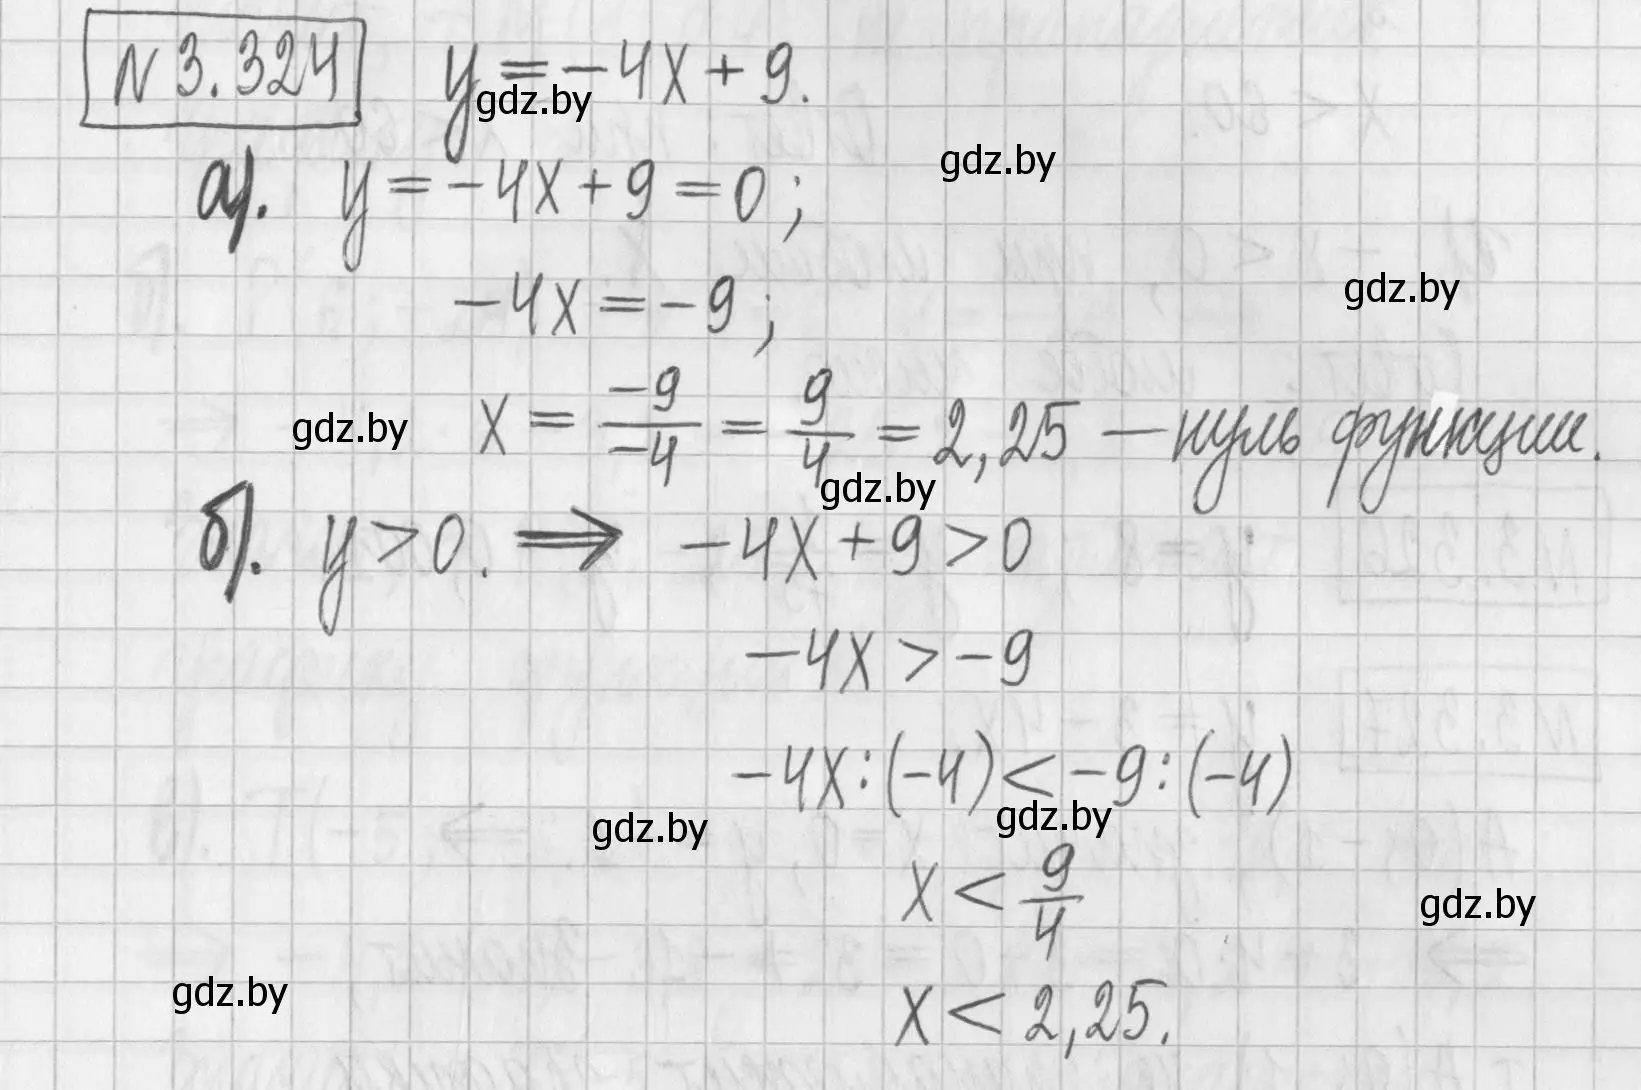 N 3.324 y = -4x + 9.
gdz.by
gdz.by
а). y = -4x + 9 = 0;
-4x = -9;
gdz.by
x = -9/-4 = 9/4 = 2,25 — нуль функции.
gdz.by
gdz.by
б). y > 0. ⇒ -4x + 9 > 0
-4x > -9
-4x : (-4) < -9 : (-4)
gdz.by
gdz.by
x < 9/4
gdz.by
gdz.by
x < 2,25.